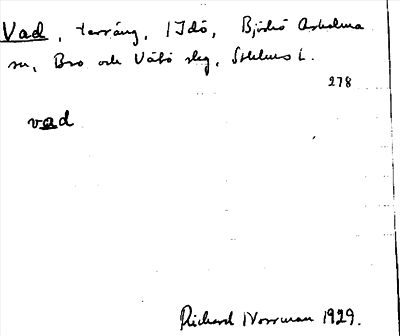 Vad, terräng, I Idö, Björkö Arholma
sn, Bro och Vätö slg, Sthlms l.
278
vad
Richard Norrman 1929.